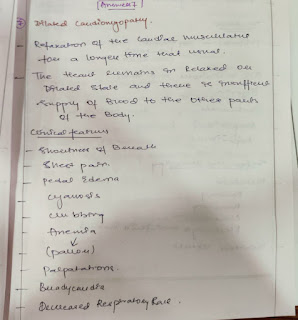 Answer 7
Dilated Cardiomyopathy.
Relaxation of the Cardiac musculature
for a longer time that usual.
The heart remains in Relaxed or
Dilated State and there is insufficient
Supply of Blood to the other parts
of the Body.
Clinical features
- Shortness of Breath
- Chest pain.
- Pedal Edema
- Cyanosis
- clubbing
- Anemia
(pallor)
- Palpatations.
- Bradycardia
- Decreased Respiratory Rate.